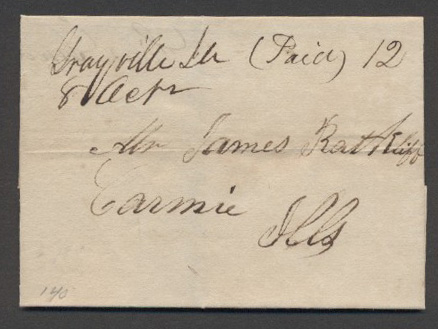 Grayville Ills (Paid) 12
8 Octr
Mr James Ratcliff
Carmie
Ills
140